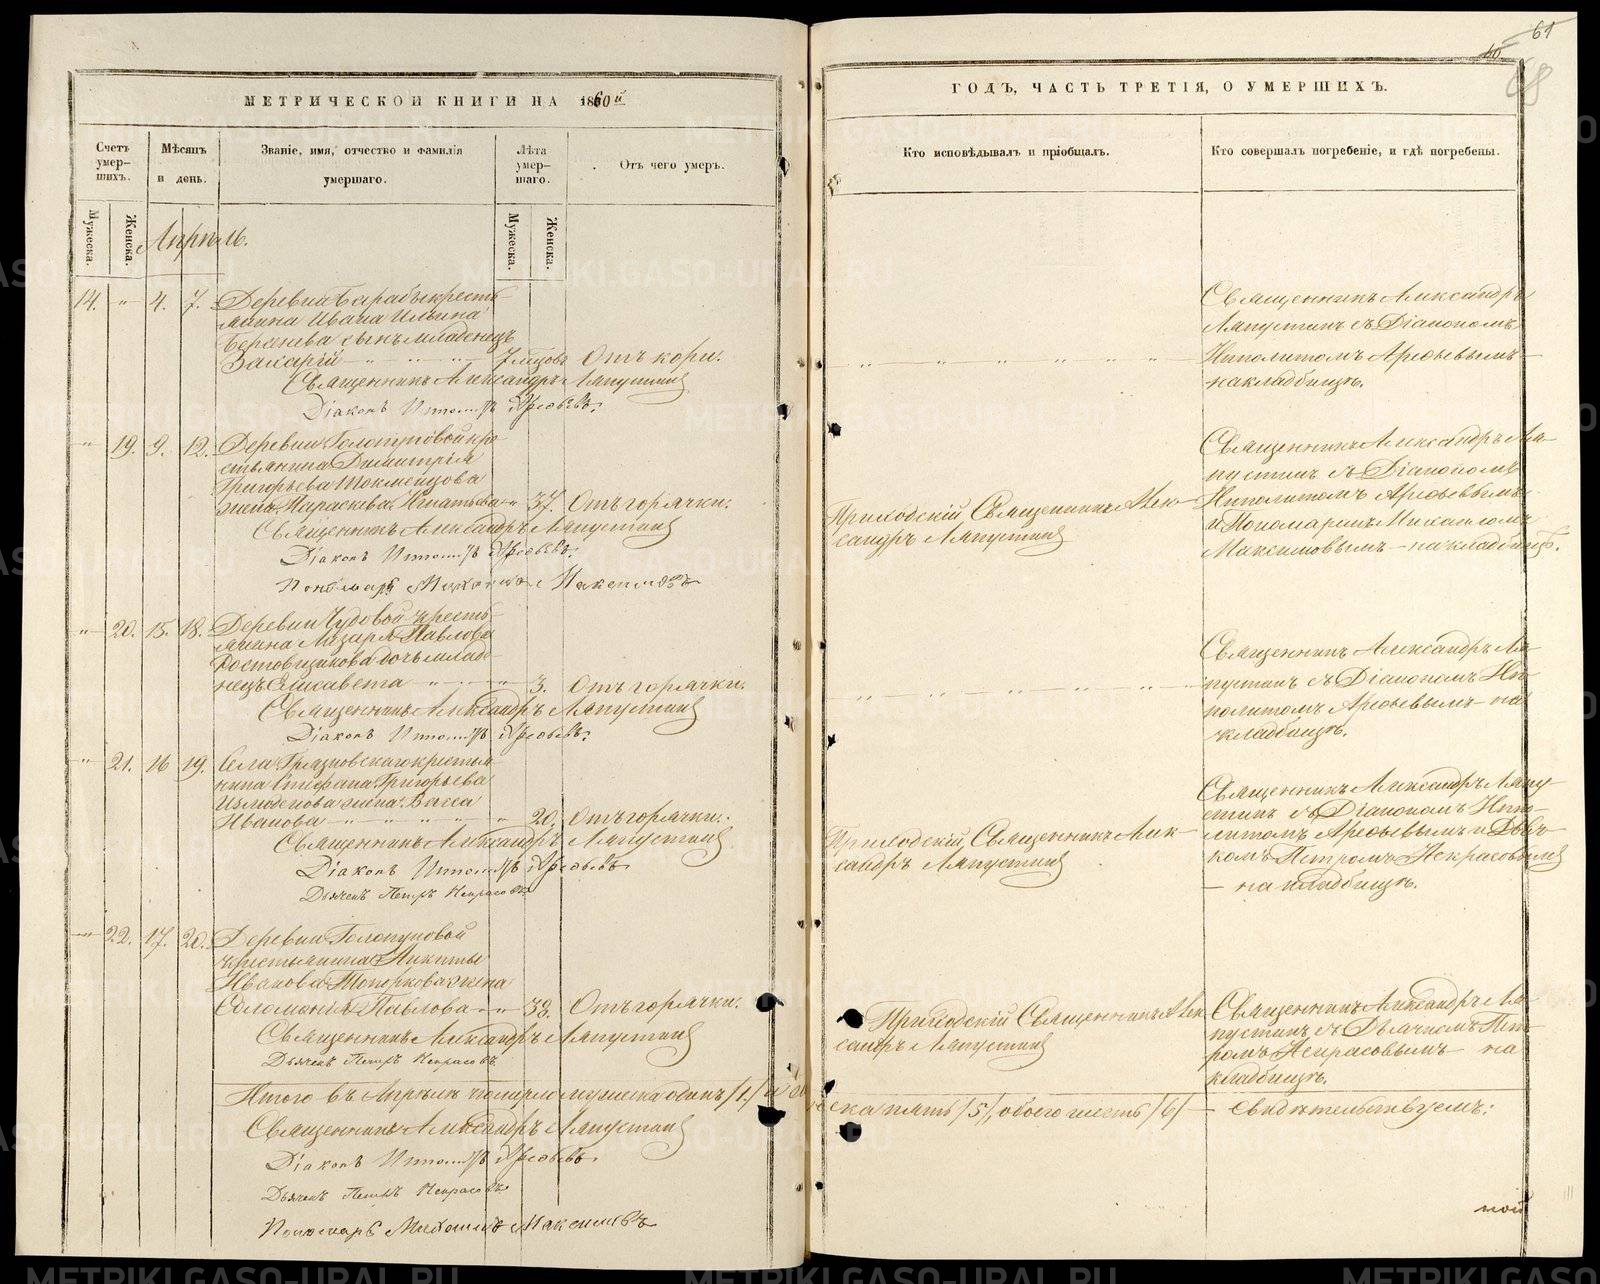 61
60
68
МЕТРИЧЕСКОЙ КНИГИ НА 1860й
ГОДЪ, ЧАСТЬ ТРЕТІЯ, О УМЕРШИХЪ.
Счетъ умер-
шихъ.
Мѣсяцъ
и день.
Званіе, имя, отчество и фамилія
умершаго.
Лѣта
умер-
шаго.
Отъ чего умеръ.
Кто исповѣдывалъ и пріобщалъ.
Кто совершалъ погребеніе, и гдѣ погребены.
Мужеска.
Женска.
Мужеска.
Женска.
Апрель.
14. " 4. 7. Деревни Барабы кресть-
янина Ивана Ильина
сынъ младенецъ
Захарій 7 мцовъ Отъ кори.
Священникъ Александръ Ляпустинъ
Діаконъ Ипполитъ Арефьевъ.
Священникъ Александръ
Ляпустинъ съ Діакономъ
Ипполитомъ Арефьевымъ
на кладбищѣ.
" 19. 9. 12. Деревни Голопуповой кре-
стьянина Димитрія
Григорьева
жена Параскева Игнатьева " 37. Отъ горячки.
Священникъ Александръ Ляпустинъ
Діаконъ Ипполитъ Арефьевъ.
Пономарь Михаилъ Максимовъ
Приходскій Священникъ Алек-
сандръ Ляпустинъ
Священникъ Александръ Ля-
пустинъ съ Діакономъ
Ипполитомъ Арефьевымъ
и Пономаремъ Михаиломъ
Максимовымъ - на кладбищѣ.
" 20. 15. 18. Деревни Чудовой кресть-
янина Лазаря Павлова
Ростовщикова дочь младе-
нецъ Елисавета " 3. Отъ горячки.
Священникъ Александръ Ляпустинъ
Діаконъ Ипполитъ Арефьевъ.
Священникъ Александръ Ля-
пустинъ съ Діакономъ Ип-
политомъ Арефьевымъ - на
кладбищѣ.
" 21. 16 19. Села Грязновскаго крестья-
нина Стефана Григорьева
Измоденова жена Васса
Иванова " 20. Отъ горячки.
Священникъ Александръ Ляпустинъ
Діаконъ Ипполитъ Арефьевъ
Дьячекъ Петръ Некрасовъ
Приходскій Священникъ Алек-
сандръ Ляпустинъ
Священникъ Александръ Ляпу-
стинъ съ Діакономъ Иппо-
литомъ Арефьевымъ и Дьяч-
комъ Петромъ Некрасовымъ
- на кладбищѣ.
" 22. 17. 20. Деревни Голопуповой
крестьянина Никиты
Иванова Топоркова жена
Соломанія Павлова " 38. Отъ горячки.
Священникъ Александръ Ляпустинъ
Дьячекъ Петръ Некрасовъ
Приходскій Священникъ Алек
сандръ Ляпустинъ
Священникъ Александръ Ля-
пустинъ съ Дьячкомъ Пет-
ромъ Некрасовымъ на
кладбищѣ.
Итого въ Апрелѣ померло мужеска одинъ /1/ и женска пять /5/, обоего шесть /6/ - свидѣтельствуемъ:
Священникъ Александръ Ляпустинъ
Діаконъ Ипполитъ Арефьевъ.
Дьячекъ Петръ Некрасовъ
Пономарь Михаилъ Максимовъ
METRIKI.GASO-URAL.RU